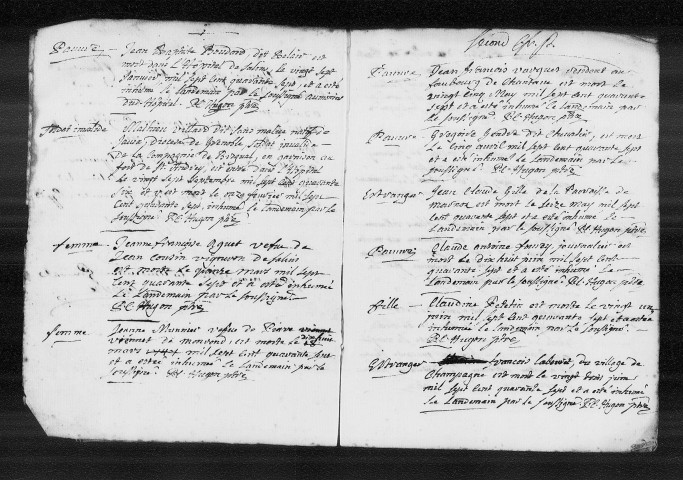 Pauvre Jean Baptiste Boudard dit Belair est
mort dans L'hopital de Salins le vingt sept
Janvier mil sept cent quarante sept et a eté
inhumé le landemain par le soussigné aumonier
dud hopital. P.C. Hugon ptre
Soldat invalide Mathieu Villard dit Sans
Diocese de Grenoble Soldat invalide
De la Compagnie de en garnison au
fort de St André, est entré dans L'hopital
le vingt sept Septembre mil sept cent quarante
Six et y est mort le onze fevrier mil sept
Cent quarante sept inhumé le landemain par le
Soussigné P.C. Hugon ptre
femme Jeanne françoise Aguet vefve de
Jean Cousin vigneron de Salins
est morte le mars mil sept
Cent quarante sept et a esté inhumée
Le Landemain par le soussigné
P.C. Hugon ptre
femme Jeanne vefve de Pierre
est morte le dixhuit
mars mil sept Cent quarante sept
et a esté inhumée le Landemain par le
soussigné P.C. Hugon ptre
Second
Pauvre Jean François au
fauxbourg de est mort le
vingt cinq May mil sept cent quarante
sept et a esté inhumé le Landemain par
le soussigné P.C. Hugon ptre
Pauvre Gregoire dit Chevalier, est mort
Le Cinq avril mil sept cent quarante sept
et a esté inhumé le Landemain par Le
soussigné P.C. Hugon ptre
Estranger Jean Claude Gille de la Parroisse de
est mort le Seize May mil sept
Cent quarante sept et a esté inhumé le
Landemain par le soussigné P.C. Hugon ptre
Pauvre Claude antoine journalier est
mort le dix huit juin mil sept Cent
quarante sept et a esté inhumé Le
Landemain par le soussigné P.C. Hugon ptre
fille Claudine Peletin est morte le vingt un
juin mil sept Cent quarante sept et a esté
inhumée le landemain par Le soussigné
P.C. Hugon ptre
Estranger francois du village de
Champagne est mort le vingt trois juin
mil sept Cent quarante sept et a esté inhumé
Le Landemain par le soussigné P.C. Hugon ptre